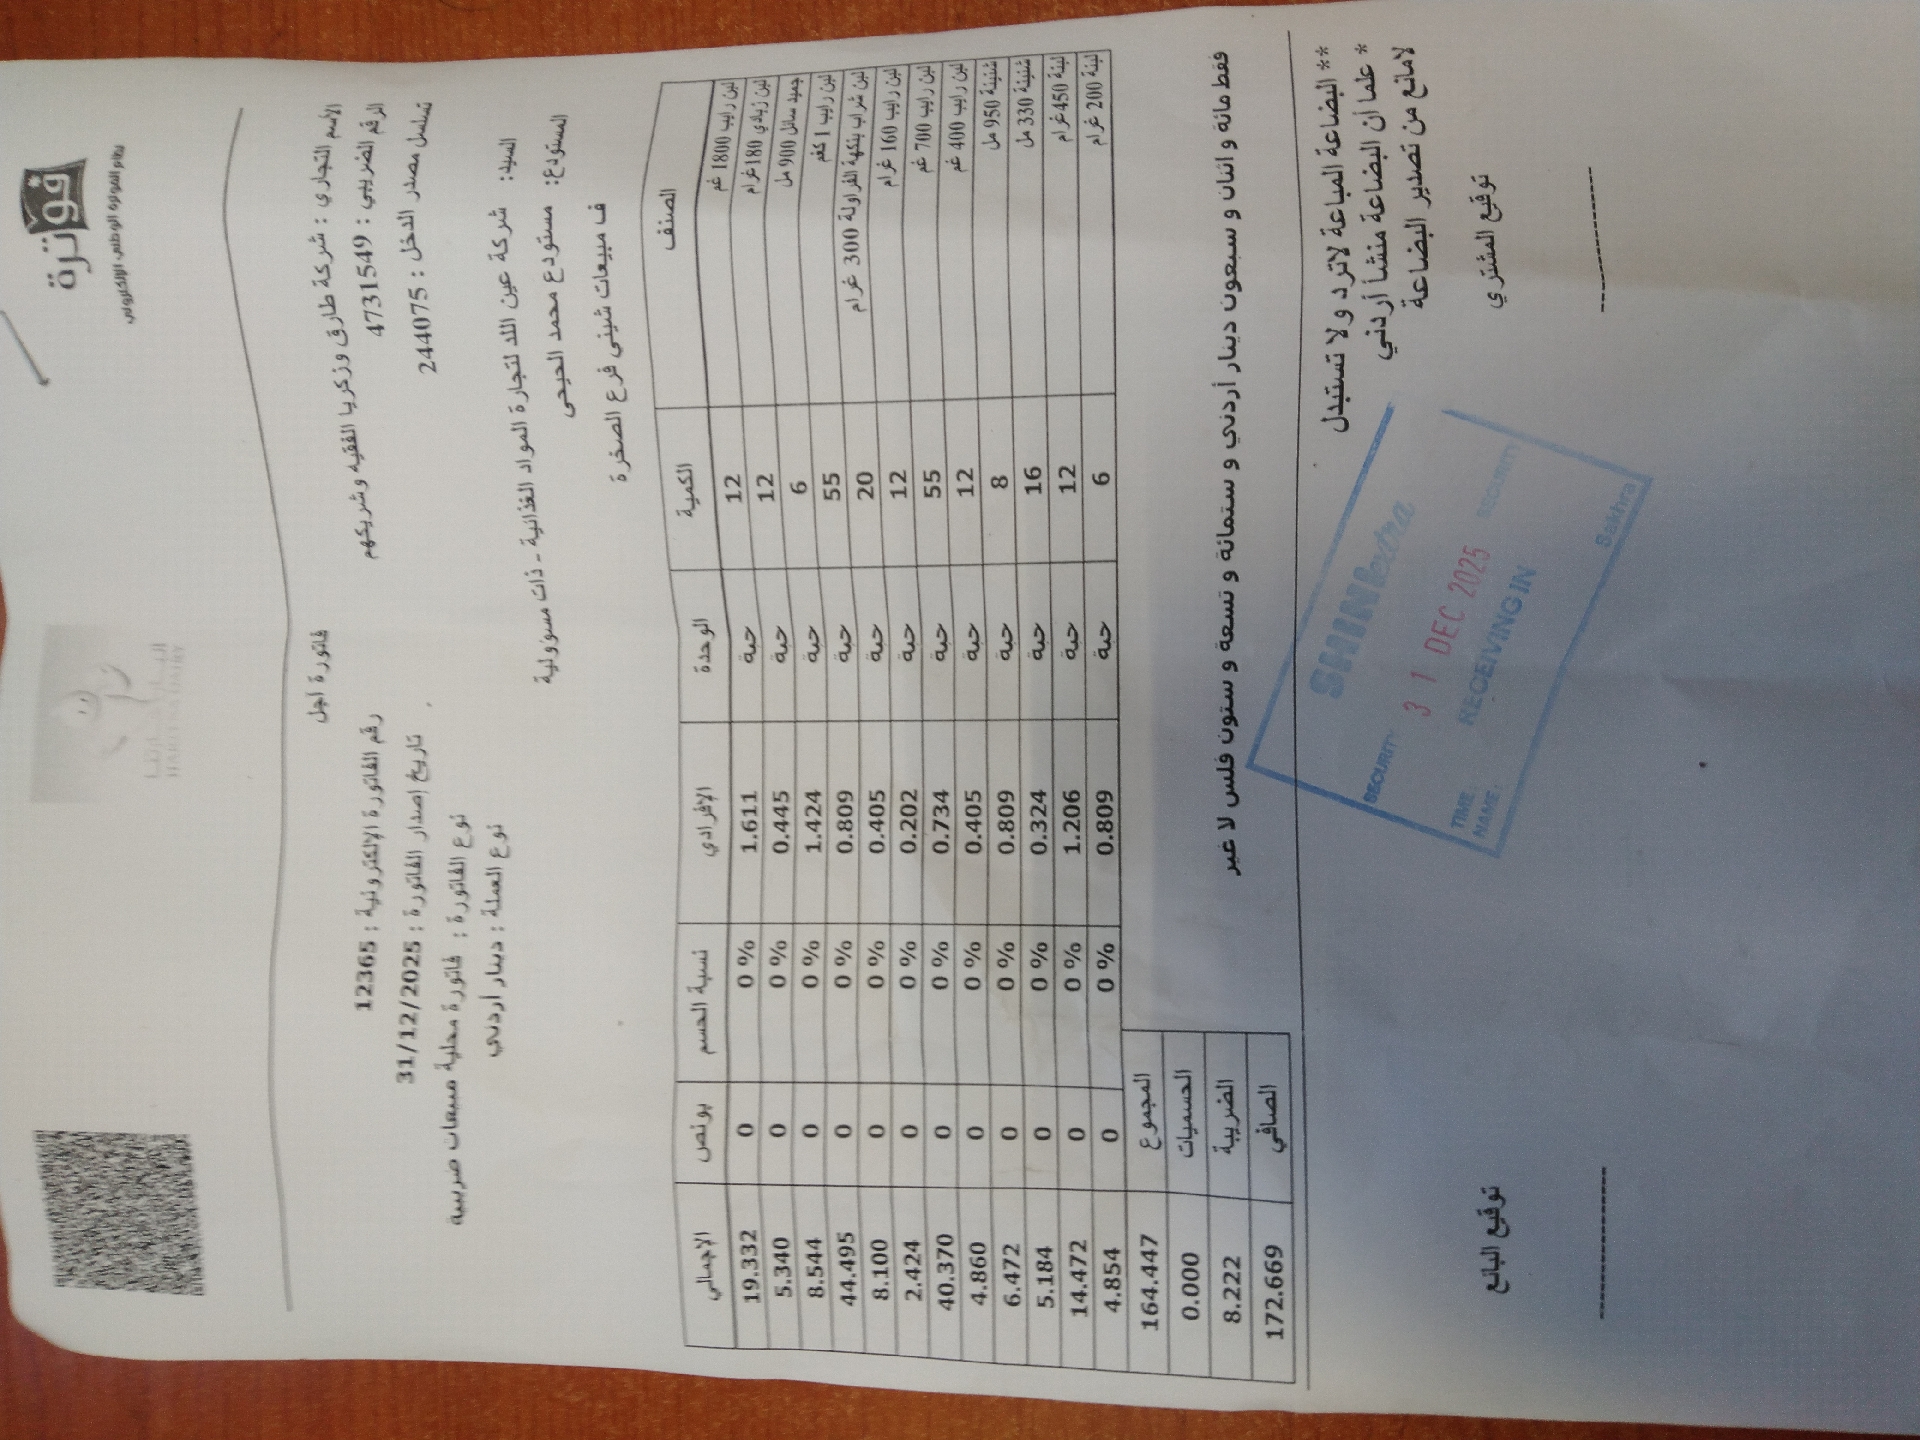 فوترة
نظام الفوترة الوطني الإلكتروني
فاتورة آجل
الاسم التجاري : شركة طارق وزكريا الفقيه وشريكهم
الرقم الضريبي : 4731549
تسلسل مصدر الدخل : 244075
رقم الفاتورة الإلكترونية : 12365
تاريخ إصدار الفاتورة : 31/12/2025
نوع الفاتورة : فاتورة محلية مبيعات ضريبية
نوع العملة : دينار أردني
السيد: شركة عين اللد لتجارة المواد الغذائية - ذات مسؤولية
المستودع: مستودع محمد الحيحى
ف مبيعات شيني فرع الصخرة
الصنف الكمية الوحدة الإفرادي نسبة الحسم بونص الإجمالي
لبن رايب 1800 غم 12 حبة 1.611 0 % 0 19.332
لبن زبادي 180 غرام 12 حبة 0.445 0 % 0 5.340
جميد سائل 900 مل 6 حبة 1.424 0 % 0 8.544
لبن رايب 1 كغم 55 حبة 0.809 0 % 0 44.495
لبن شراب بنكهة الفراولة 300 غرام 20 حبة 0.405 0 % 0 8.100
لبن رايب 160 غرام 12 حبة 0.202 0 % 0 2.424
لبن رايب 700 غم 55 حبة 0.734 0 % 0 40.370
لبن رايب 400 غم 12 حبة 0.405 0 % 0 4.860
شنينة 950 مل 8 حبة 0.809 0 % 0 6.472
شنينة 330 مل 16 حبة 0.324 0 % 0 5.184
لبنة 450 غرام 12 حبة 1.206 0 % 0 14.472
لبنة 200 غرام 6 حبة 0.809 0 % 0 4.854
المجموع 164.447
الحسميات 0.000
الضريبة 8.222
الصافي 172.669
فقط مائة و اثنان و سبعون دينار أردني و ستمائة و تسعة و ستون فلس لا غير
** البضاعة المباعة لاترد ولا تستبدل
* علما أن البضاعة منشأ أردني
لامانع من تصدير البضاعة
توقيع المشتري
توقيع البائع
SECURITY
3 1 DEC 2025
SECURITY
TIME:
RECEIVING IN
NAME:
Sakhra